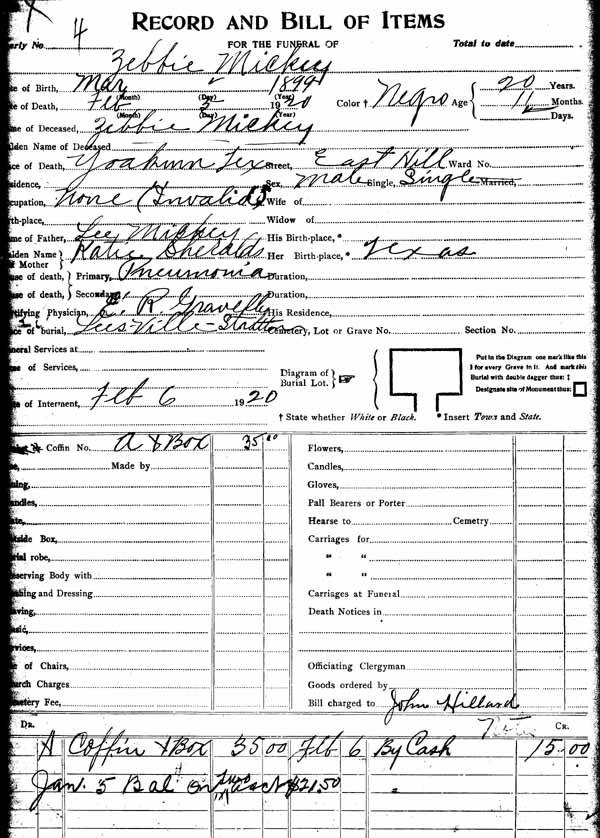 4
RECORD AND BILL OF ITEMS
FOR THE FUNERAL OF
arty No. Total to date
Zebbie Mickey
te of Birth, Mar 1899 20 Years.
(Month) (Day) (Year)
te of Death, Feb 5 1920 Color † Negro Age 11 Months.
(Month) (Day) (Year)
Days.
me of Deceased, Zebbie Mickey
iden Name of Deceased
ace of Death, Yoakum Tex Street, East Hill Ward No.
sidence, Sex, Male Single, Single Married,
cupation, None (Invalid) Wife of
rth-place, Widow of
me of Father, Lee Mickey His Birth-place, *
aiden Name of Mother Katie Sheralds Her Birth-place, * Texas
use of death, Primary, Pneumonia Duration,
use of death, Secondary Duration,
tifying Physician, R. Gravelly His Residence,
e of burial, Leesville - Cemetery, Lot or Grave No. Section No.
neral Services at
e of Services,
Diagram of Burial Lot.
Put in the Diagram one mark like this
I for every Grave in it. And mark this
Burial with double dagger thus: ‡
Designate site of Monument thus:
e of Interment, Feb 6 1920
† State whether White or Black. * Insert Town and State.
Coffin No. A & Box 35.00 Flowers,
Made by Candles,
ning, Gloves,
ndles, Pall Bearers or Porter
ate, Hearse to Cemetry
tside Box, Carriages for
rial robe, " "
eserving Body with " "
shing and Dressing Carriages at Funeral
aving, Death Notices in
usic,
rvices,
e of Chairs, Officiating Clergyman
urch Charges Goods ordered by
metery Fee, Bill charged to John Hillard
DR. CR.
A Coffin & Box 35 00 Feb 6 By Cash 15.00
Jan. 5 Bal on $21.50